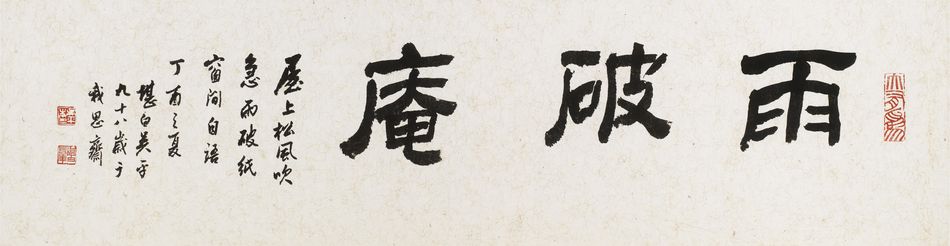 雨破庵
屋上松風吹
急雨破紙
窗間自語
丁酉之夏
堪白吳平
九十八歲于
我思齋